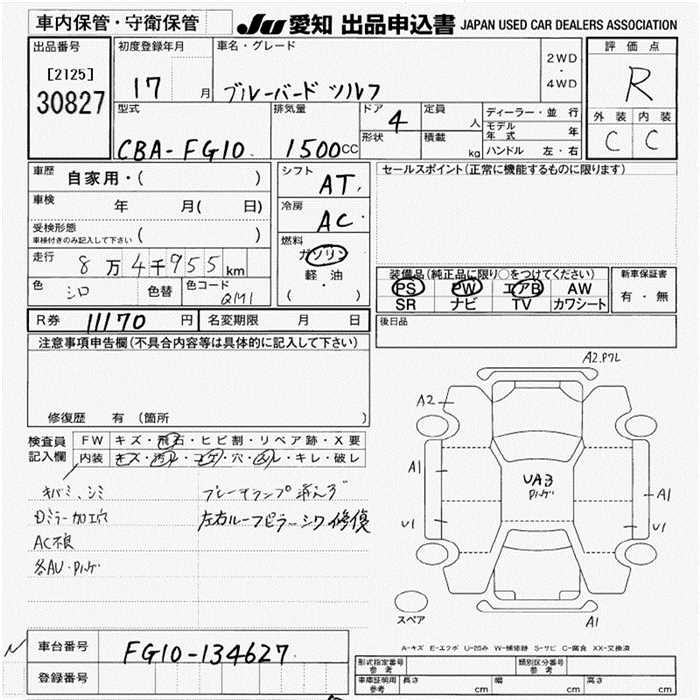 車内保管・守衛保管
JU 愛知 出品申込書 JAPAN USED CAR DEALERS ASSOCIATION
出品番号
[2125]
30827
初度登録年月
17 月
車名・グレード
ブルーバード シルフ
2WD
・
4WD
評価点
R
外装 内装
C C
型式
CBA-FG10
排気量
1500CC
ドア
4
形状
定員
人
積載
kg
ディーラー・並行
モデル年式 年
ハンドル 左・右
車歴
自家用・( )
車検
年 月( 日)
受検形態
車検付きのみ記入して下さい ( )
走行
8万4千955km
色
シロ
色替
色コード
QM1
シフト
AT
冷房
AC
燃料
ガソリン
軽油
( ・ )
セールスポイント(正常に機能するものに限ります)
装備品(純正品に限り○をつけてください)
PS PW エアB AW
SR ナビ TV カワシート
新車保証書
有・無
R券 11170 円
名変期限 月 日
後日品
注意事項申告欄(不具合内容等は具体的に記入して下さい)
修復歴 有(箇所 )
検査員記入欄
FW キズ・飛石・ヒビ割・リペア跡・X要
内装 キズ・汚レ・コゲ・穴・スレ・キレ・破レ
キバミ、シミ
ミラー加工穴
AC不良
各AU・Pハゲ
ブレーキランプ消えず
左右ルーフピラーシワ修復
A2.Pワレ
A2
A1
U1
UA3
Pハゲ
A1
U1
A1
スペア
A-キズ E-エクボ U-凹み W-補修跡 S-サビ C-腐食 XX-交換済
車台番号
FG10-134627
登録番号
形式指定番号
参考
類別区分番号
参考
車庫証明用
参考
長さ cm
幅 cm
高さ cm